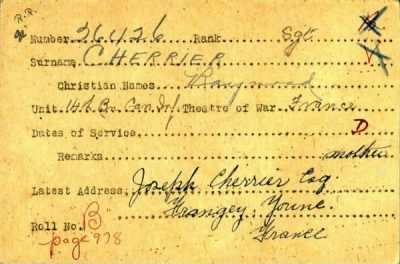 R.R.
Number 26426 Rank Sgt.
Surname CHERRIER
Christian Names Raymond
Unit 14th Bn. Can. Inf. Theatre of War France
Dates of Service D
Remarks mother
Latest Address Joseph Cherrier Esq
Yonne
Roll No. B France
page 978